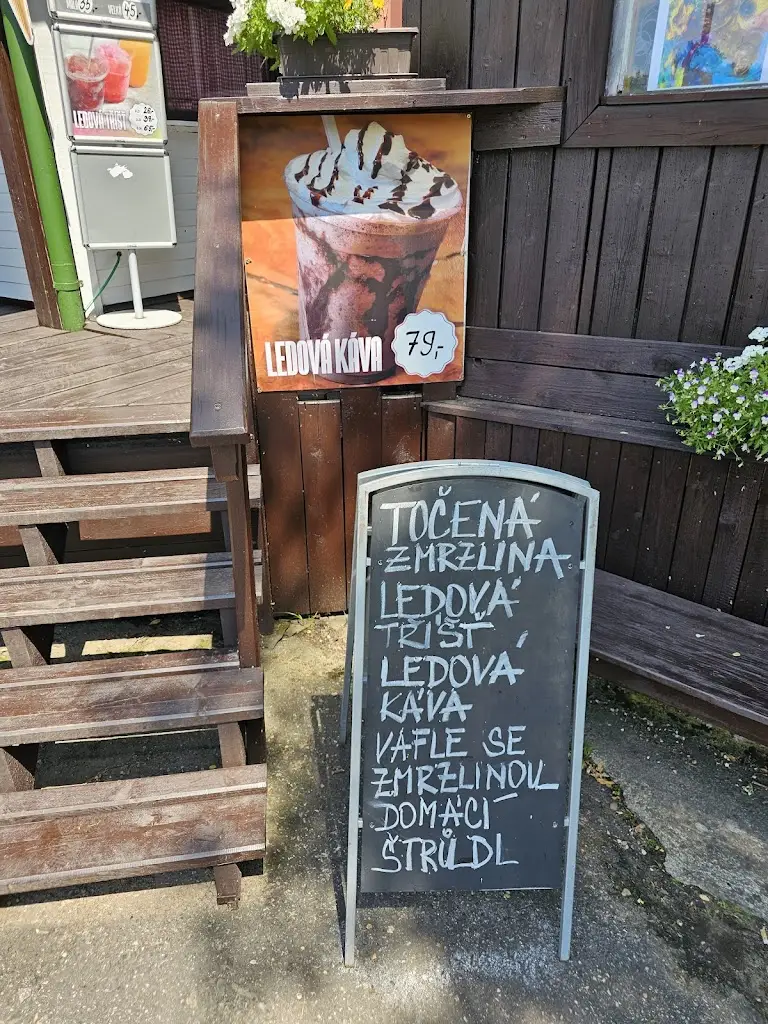 35,-
45,-
LEDOVÁ TŘÍŠŤ
LEDOVÁ KÁVA
79,-
TOČENÁ
ZMRZLINA
LEDOVÁ
TŘÍŠŤ
LEDOVÁ
KÁVA
VAFLE SE
ZMRZLINOU
DOMÁCÍ
ŠTRŮDL